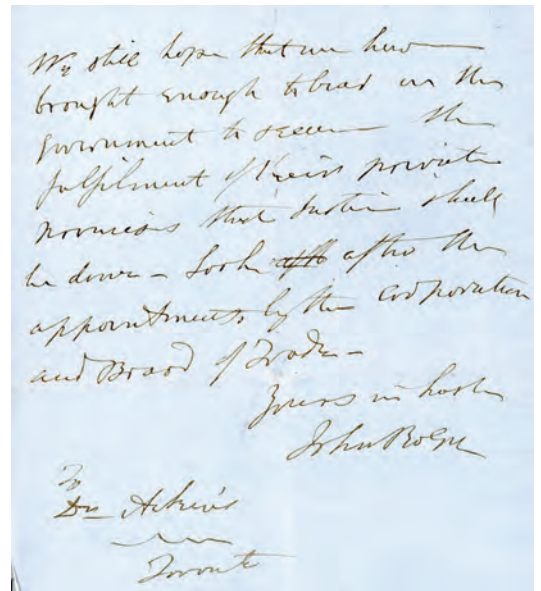 We still hope that we have
brought enough to bear on the
government to secure the
fulfilment of their private
promises that Justice shall
be done – Look after the
appointments by the corporation
and Board of Trade –
Yours in haste
John Rolph
To
Dr Aikins
Toronto